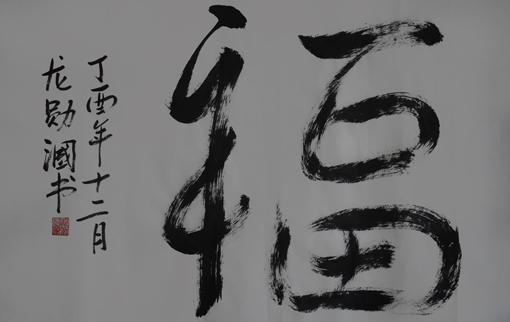 福
丁酉年十二月
龙勋润书